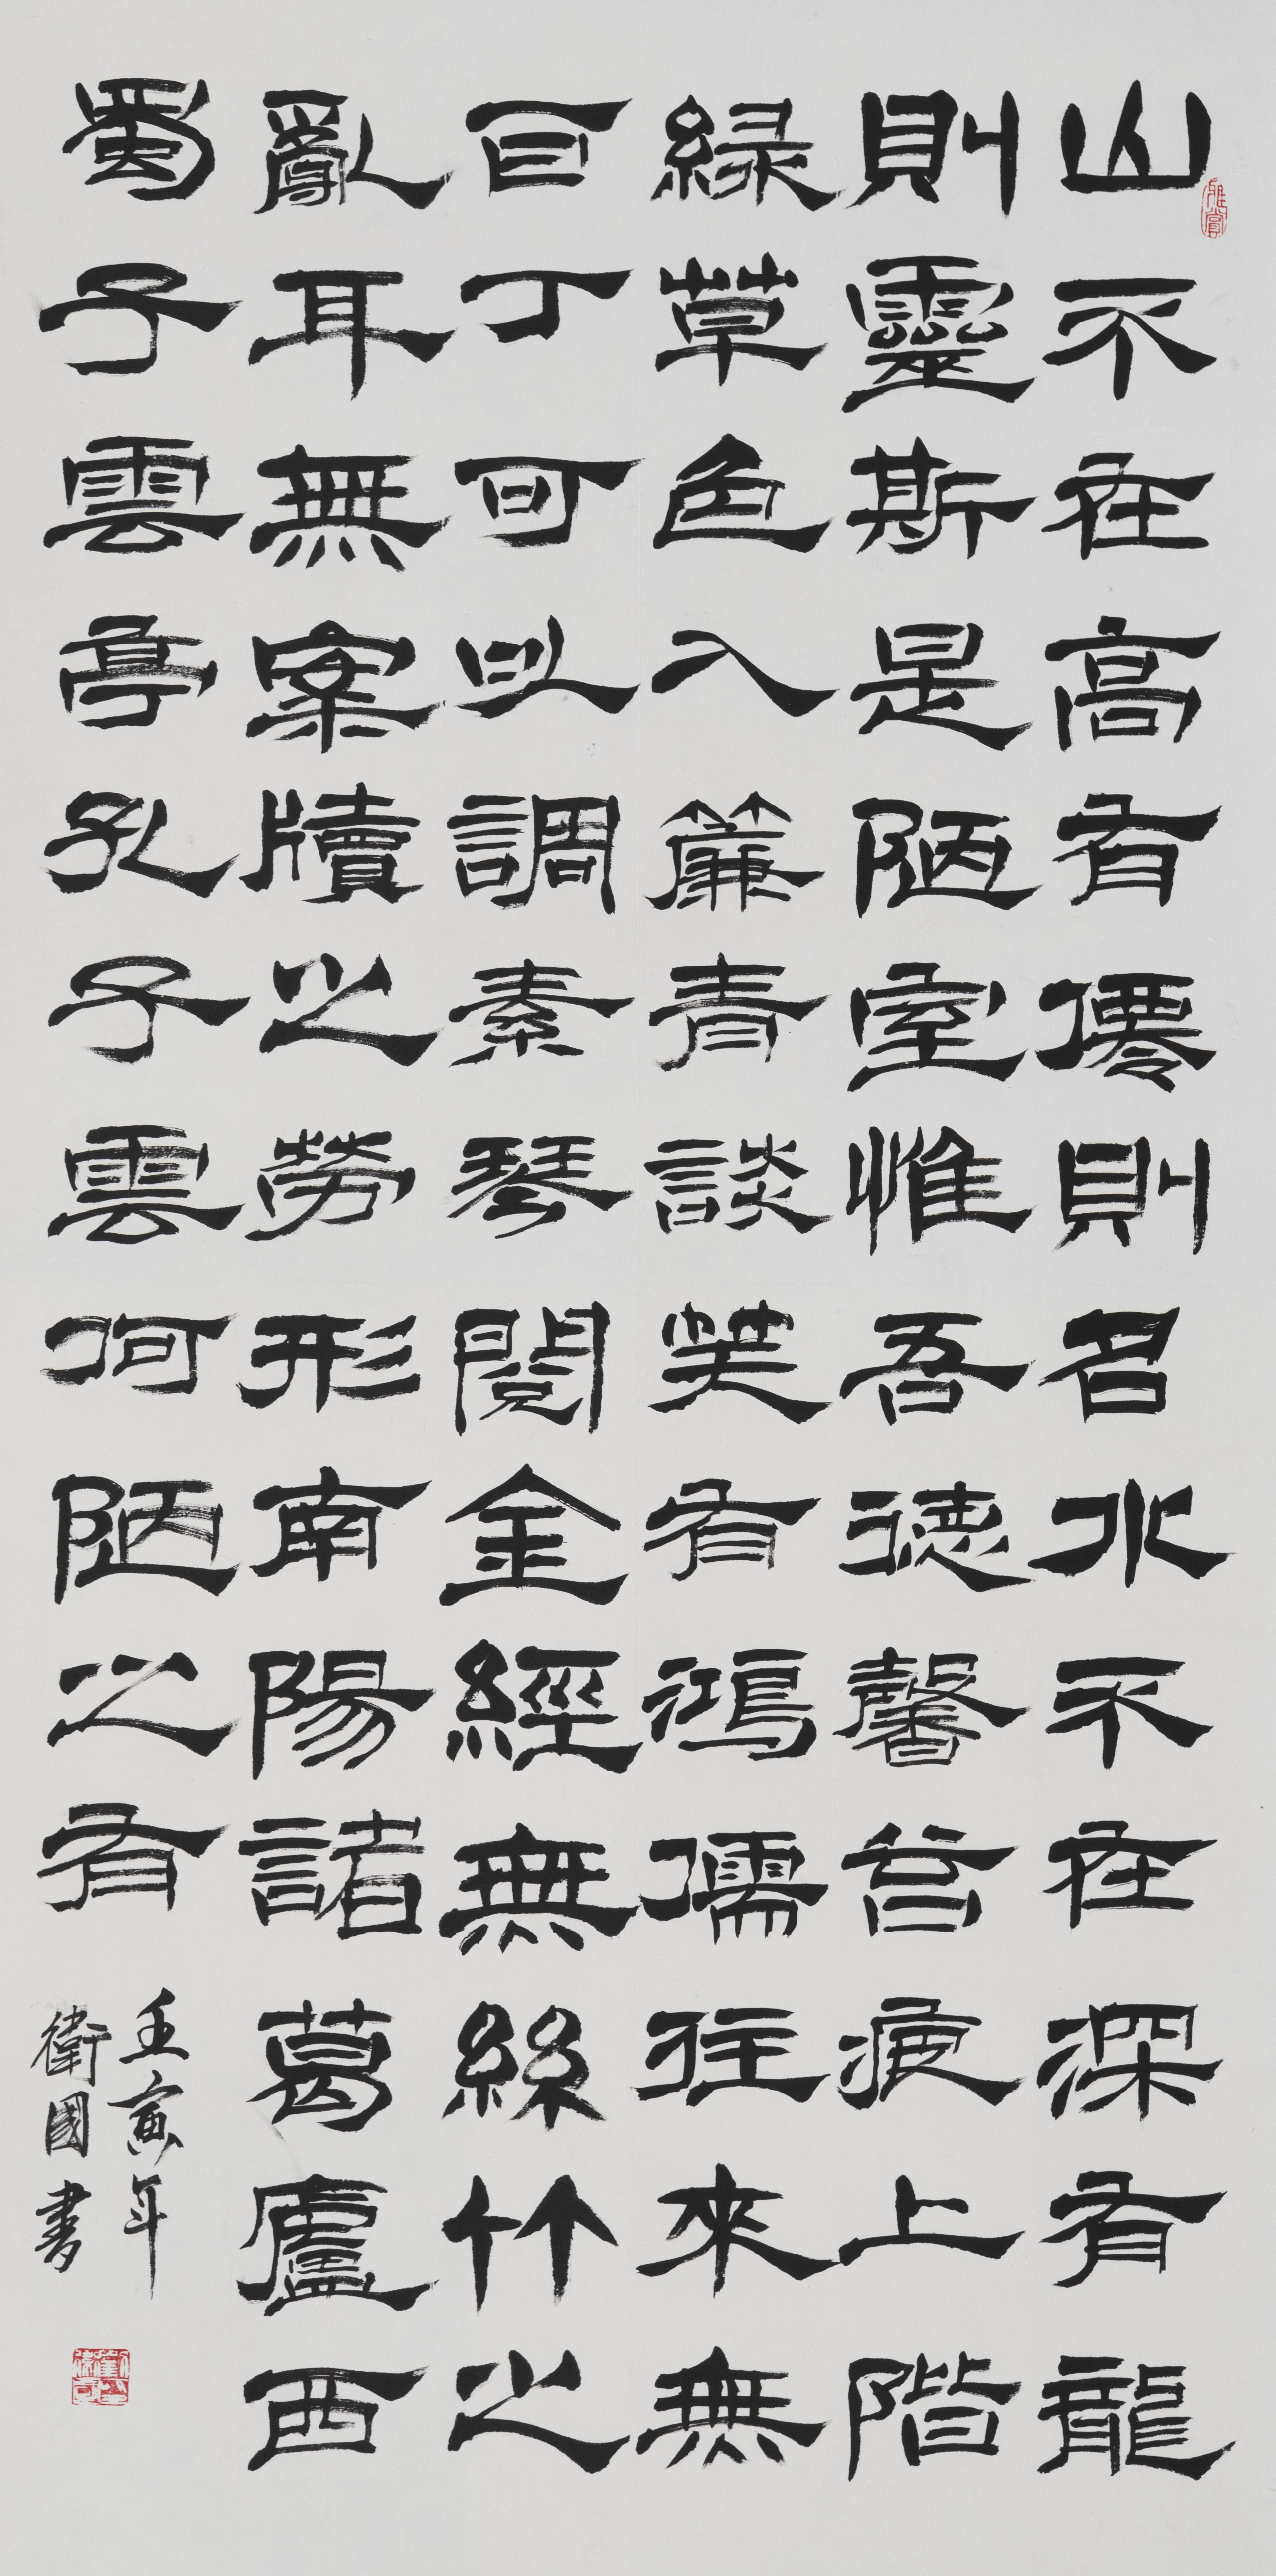 山不在高有僊則名水不在深有龍
則靈斯是陋室惟吾德馨苔痕上階
綠草色入簾青談笑有鴻儒往來無
白丁可以調素琴閱金經無絲竹之
亂耳無案牘之勞形南陽諸葛廬西
蜀子雲亭孔子雲何陋之有
壬寅年
衛國書
雅賞